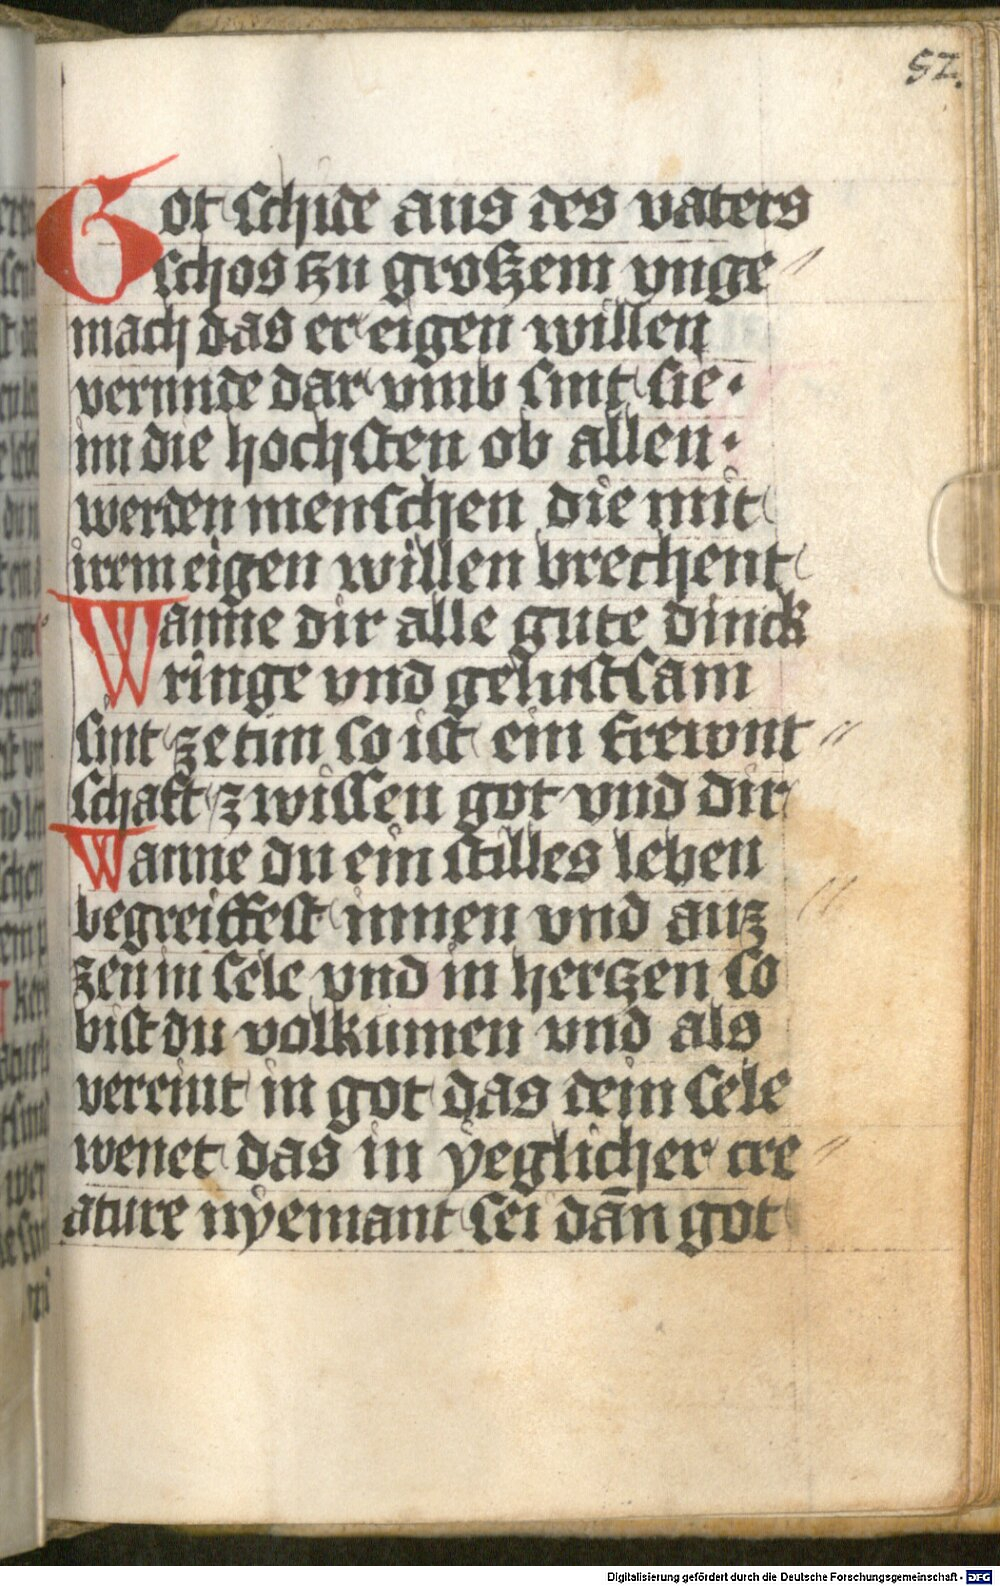 52.
Got schide aus des vaters
schos tzu groszem vnge〃
mach das er eigen willen
vernnde dar vmb sint sie·
im die hochsten ob allen·
werden menschen die mit
irem eigen willen brechent
Wanne dir alle gute dinck
ringe vnd gelustsam
sint ze tun so ist ein frewnt〃
schaft zwissen got vnd dir
Wanne du ein stilles leben
begreiffest innen vnd auz〃
zen in sele vnd in hertzen so
bist du volkumen vnd als
vereint in got das dein sele
wenet das in yeglicher cre〃
ature nyemant sei dān got
Digitalisierung gefördert durch die Deutsche Forschungsgemeinschaft - DFG